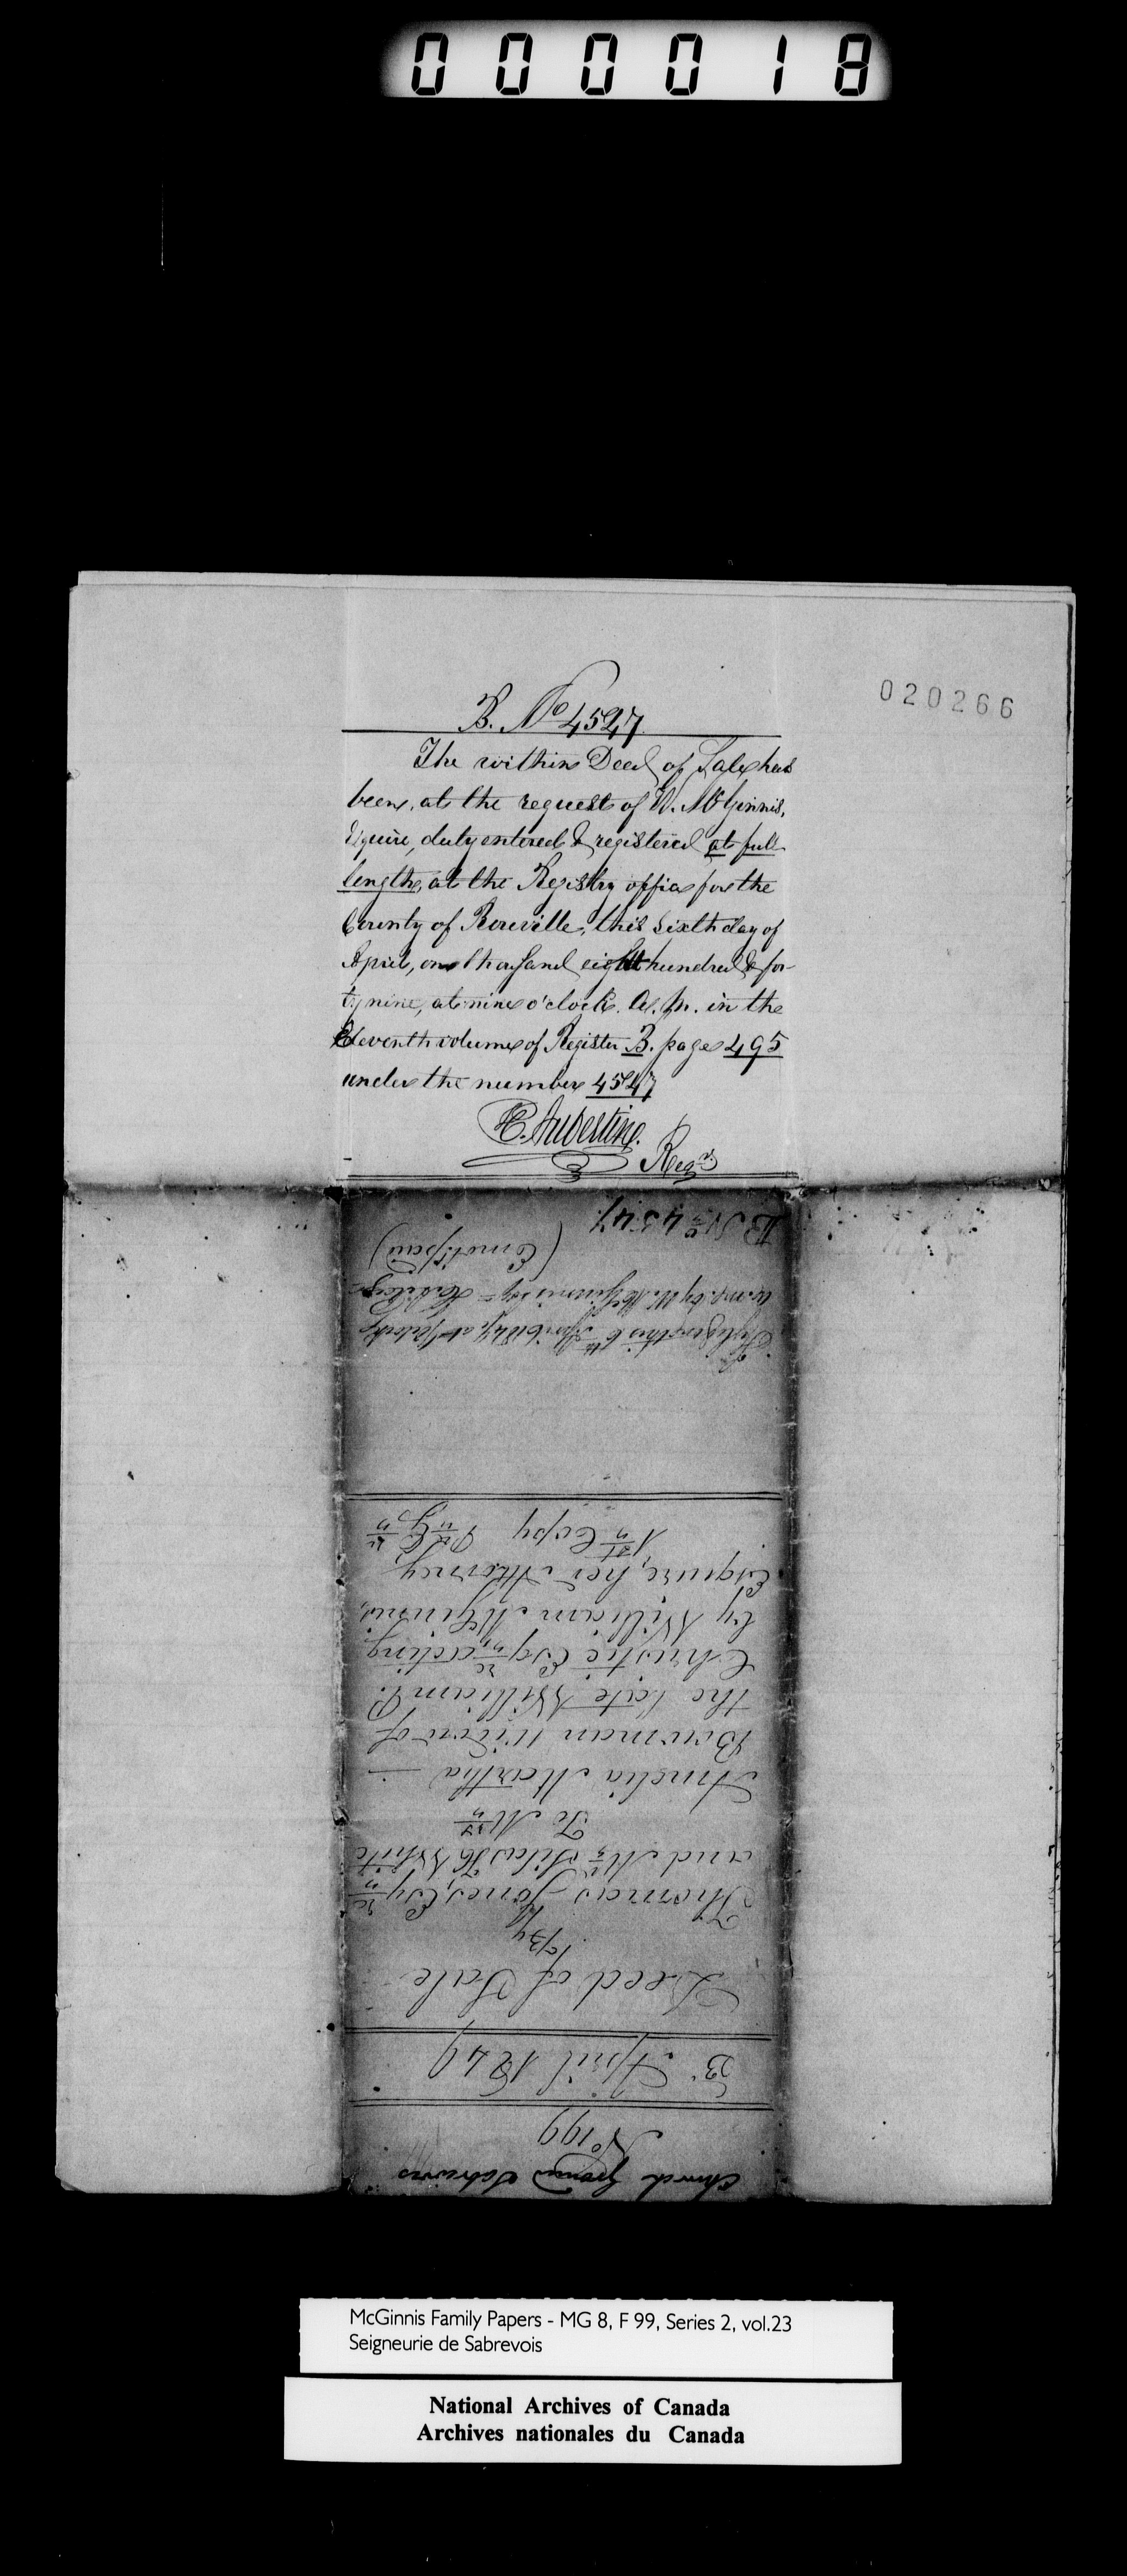 000018
020266
B. No 4547
The within Deed of Sale has
been, at the request of W. McGinnis,
Esquire, duly entered & registered at full
length, at the Registry office for the
County of Rouville, this sixth day of
April, one thousand eight hundred & for-
ty nine, at nine o'clock. A. M. in the
Eleventh volume of Register B. page 495
under the number 4547
Regr
B No 4547
Church Ground Sabrevois
No 199
3. April 1849
Deed of Sale
By
Thomas Jones, Esqre
and Mr Silas H White
To Mrs
Amelia Martha
Bowman widow of
the late William P.
Christie Esqre acting
by William McGinnis,
Esquire, her Attorney
1st Copy
McGinnis Family Papers - MG 8, F 99, Series 2, vol.23
Seigneurie de Sabrevois
National Archives of Canada
Archives nationales du Canada